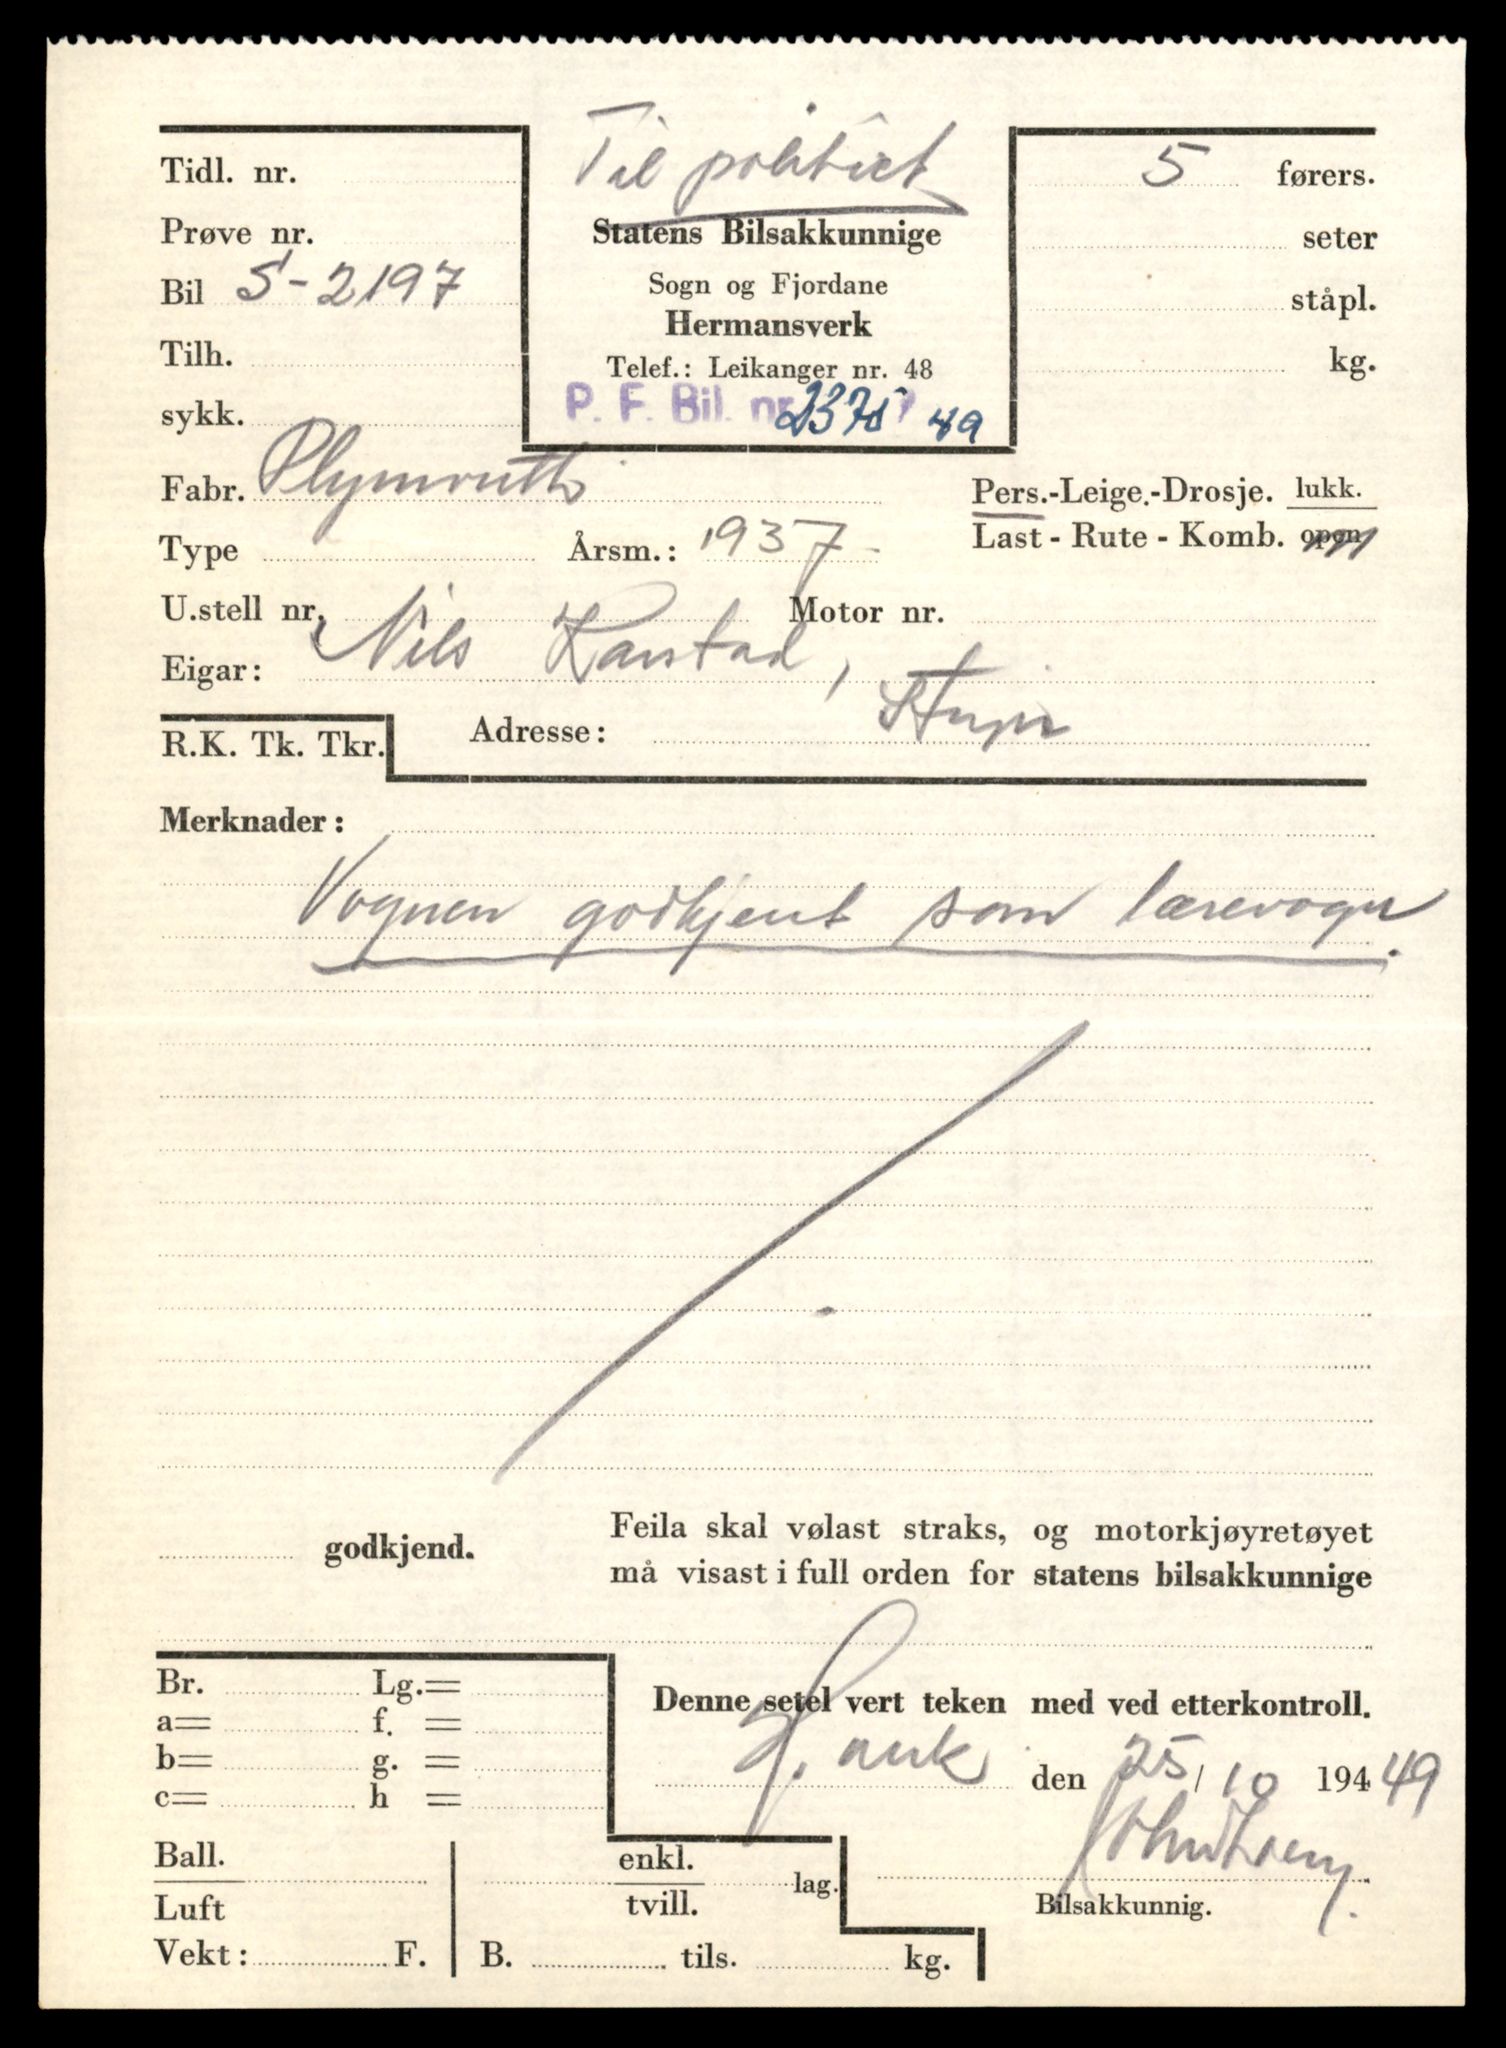 Til politiet
Tidl. nr.
Prøve nr.
Bil S-2197
Tilh.
sykk.
Statens Bilsakkunnige
Sogn og Fjordane
Hermansverk
Telef.: Leikanger nr. 48
P. F. Bil. nr. 49
5 førers.
seter
ståpl.
kg.
Fabr. Plymouth
Pers.-Leige.-Drosje. lukk.
Type Årsm.: 1937
Last - Rute - Komb. open
U.stell nr. Motor nr.
Eigar: Nils Karstad,
R.K. Tk. Tkr. Adresse: Stryn
Merknader:
Vognen godkjent som lærevogn.
godkjend.
Feila skal vølast straks, og motorkjøyretøyet
må visast i full orden for statens bilsakkunnige
Denne setel vert teken med ved etterkontroll.
den 25/10 194 49
Br. Lg.=
a= f. =
b= g. =
c= h =
Ball.
Luft
enkl.
tvill.
lag.
Bilsakkunnig.
Vekt: F. B. tils. kg.